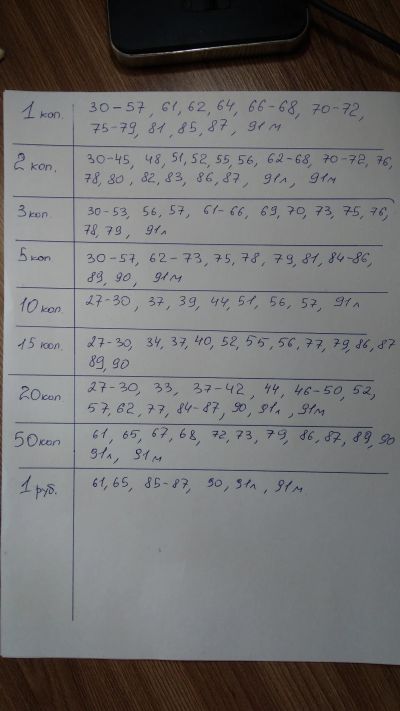 1 коп. 30-57, 61, 62, 64, 66-68, 70-72,
75-79, 81, 85, 87, 91м
2 коп. 30-45, 48, 51, 52, 55, 56, 62-68, 70-72, 76,
78, 80, 82, 83, 86, 87, 91л, 91м
3 коп. 30-53, 56, 57, 61-66, 69, 70, 73, 75, 76,
78, 79, 91л
5 коп. 30-57, 62-73, 75, 78, 79, 81, 84-86,
89, 90, 91м
10 коп. 27-30, 37, 39, 44, 51, 56, 57, 91л
15 коп. 27-30, 34, 37, 40, 52, 55, 56, 77, 79, 86, 87
89, 90
20 коп. 27-30, 33, 37-42, 44, 46-50, 52,
57, 62, 77, 84-87, 90, 91л, 91м
50 коп 61, 65, 67, 68, 72, 73, 79, 86, 87, 89, 90
91л, 91м
1 руб. 61, 65, 85-87, 90, 91л, 91м